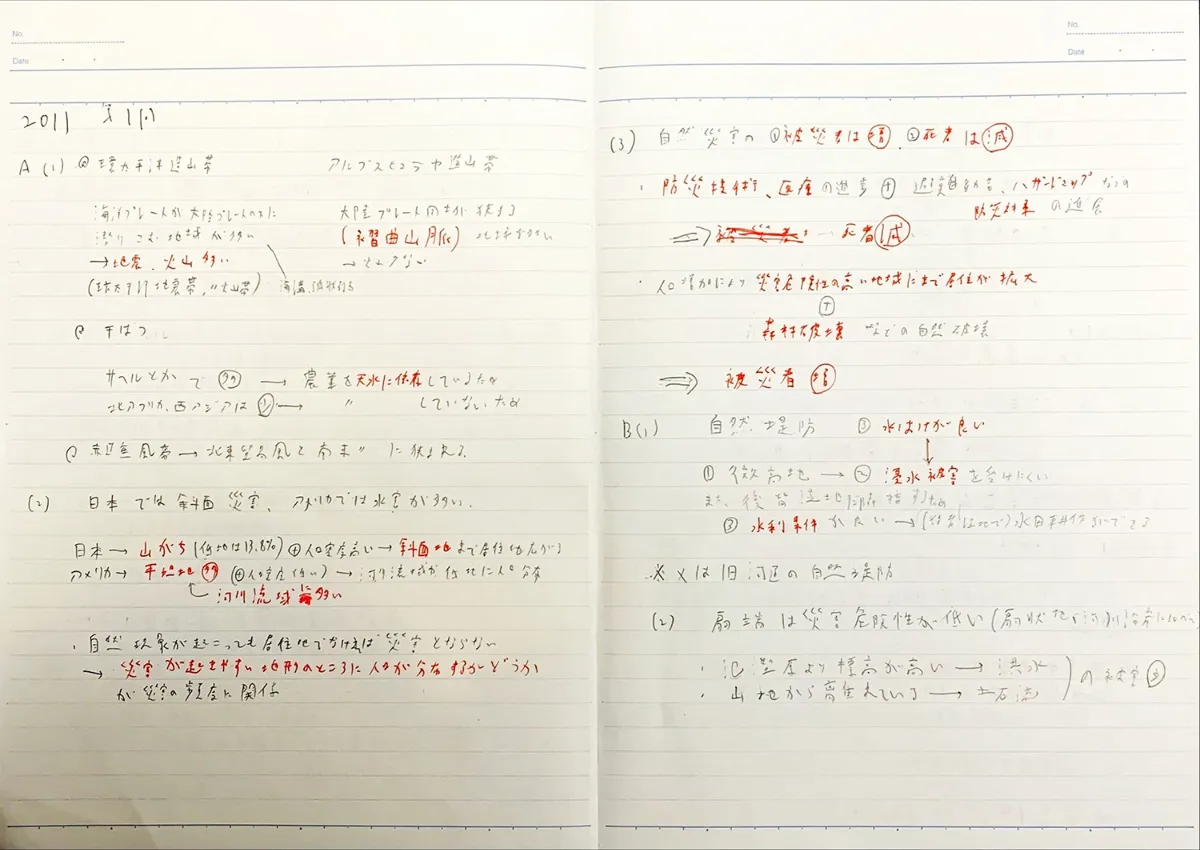 No.
Date
2011 第1問
A (1) ⓐ 環太平洋造山帯 アルプスヒマラヤ造山帯
海洋プレートが大陸プレートの下に 大陸プレート同士が狭まる
潜りこむ地域が多い (褶曲山脈) 地震多い
→地震、火山多い →火山少ない
(環太平洋地震帯、〃火山帯) 海溝、弧状列島
干ばつ
サヘルとかで㋲ → 農業を天水に依存しているため
北アフリカ、西アジアは㋛→ 〃 していないため
赤道無風帯→北東貿易風と南東〃に狭まれる
(2) 日本では斜面災害、アメリカでは水害が多い。
日本→山がち(低地は13.8%)⊕人口密度高い→斜面地まで居住地広がる
アメリカ→平坦地㋲ (⊕人口密度低い)→河川流域が低地に人口分布
河川流域に多い
・自然現象が起こっても居住地でなければ災害とならない
→災害が起きやすい地形のところに人口が分布するかどうか
が災害の頻度に関係
No.
Date
(3) 自然災害の①被災者は増、②死者は減
・防災技術、医療の進歩⊕避難勧告、ハザードマップなどの
防災対策の進展
⇒ 死者減
・人口増加により災害危険性の高い地域にまで居住が拡大
⊕
森林破壊などの自然破壊
⇒ 被災者増
B(1) 自然堤防 ③水はけが良い
① 微高地→②浸水被害を受けにくい
また、後背湿地に
③ 水利条件が →(後背湿地で)水田耕作ができる
※Xは旧河道の自然堤防
(2) 扇端は災害危険性が低い(扇状地
・氾濫原より標高が高い→洪水
・山地から離れている→土石流 の被害㋛